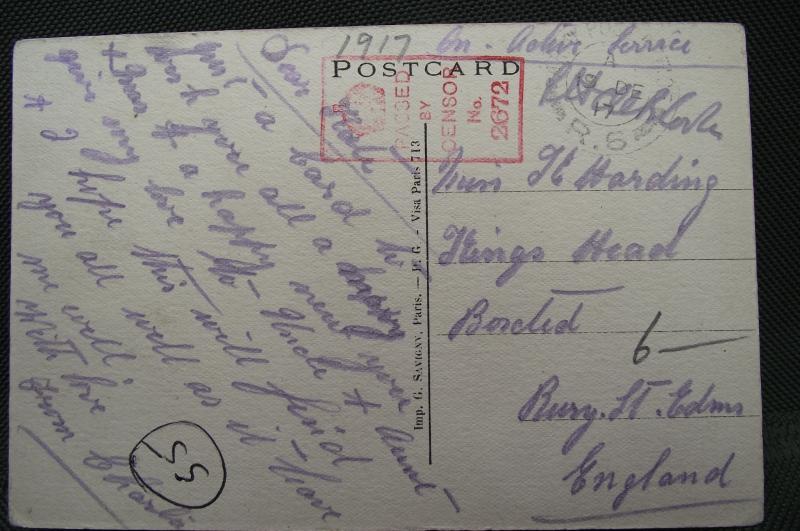 1917
On. Active Service
POSTCARD
PASSED
BY
CENSOR
No.
2672
A
19 DE
17
R.S
Miss H Harding
Kings Head
Boxted
Bury. St. Edms
England
6 —
Imp. G. SAVIGNY, Paris. — H. G. - Visa Paris 713
Dear
just a card to
wish you all a
& a happy new year
give my love to Uncle & Aunt
& I hope this will find
you all well as it leave
me well.
With love
from Charlie
55